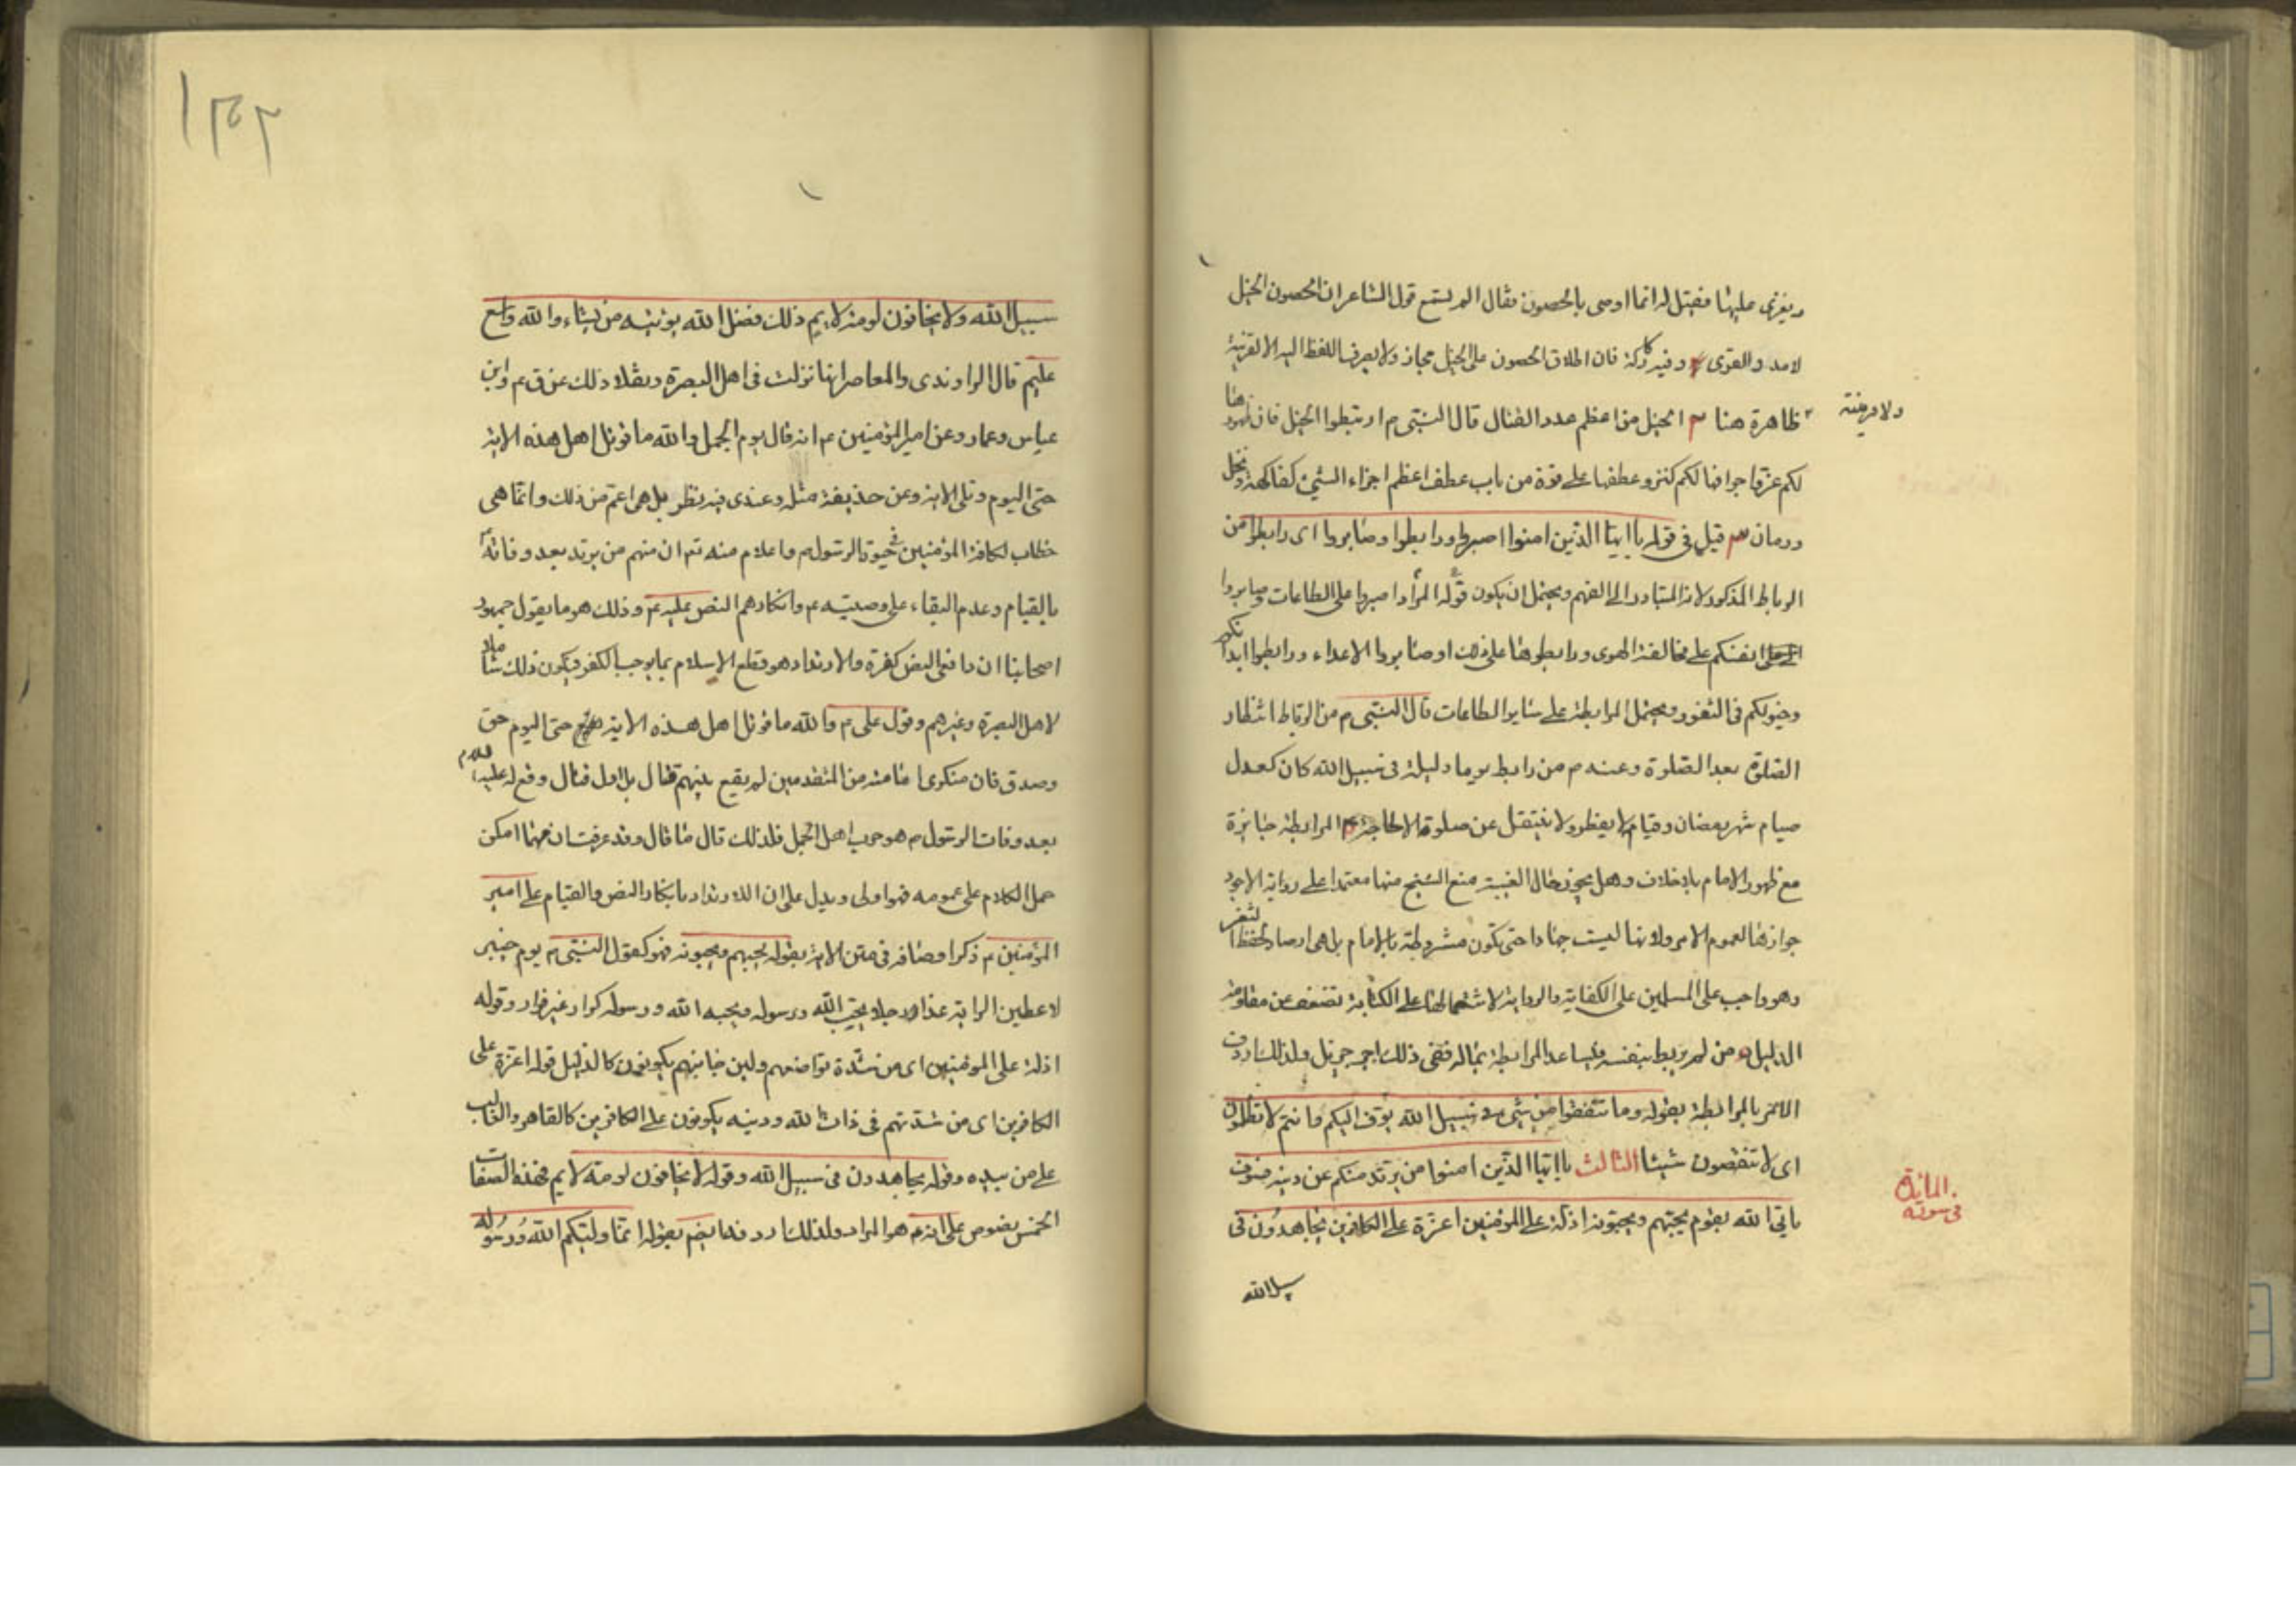 ويغزى عليها فقيل له انما اوصى بالحصون فقال الم تسمع قول الشاعر ان الحصون الخيل
لا مدر القرى وفيه ركة فان اطلاق الحصون على الخيل مجاز ولا يصرف اللفظ اليه الا لقرينة
ولا قرينة
ظاهرة هنا الخيل من اعظم عدد القتال قال النبى م ارتبطوا الخيل فان ظهورها
لكم عز واجوافها لكم كنز وعطفها على قوة من باب عطف اعظم اجزاء الشئ كفاكهة ونخل
ورمان قيل فى قوله يا ايها الذين امنوا اصبروا ورابطوا وصابروا اى رابطوا من
الرباط المذكور لانه المتبادر الى الفهم ويحتمل ان يكون قوله المراد اصبروا على الطاعات وصابروا
انفسكم على مخالفة الهوى ورابطوها على ذلك او صابروا الاعداء ورابطوا ابدانكم
وخيولكم فى الثغور ويحتمل المرابطة على ساير الطاعات قال النبى م من الرباط انتظار
الصلوة بعد الصلوة وعنه م من رابط يوما وليلة فى سبيل الله كان كعدل
صيام شهر رمضان وقيامه لا يفطر ولا ينتقل عن صلوة الا لحاجة المرابطة جايزة
مع ظهور الامام بلا خلاف وهل يجوز حال الغيبة منع الشيخ منها معتمدا على رواية الاجود
جوازها لعموم الامر ولانها ليست جهادا حتى تكون مشروطة بالامام بل هى ارصاد لحفظ الثغر
وهو واجب على المسلمين على الكفاية والرواية لاشتمالها على الكتابة تضعف عن مقاومة
الدليل من لم يربط بنفسه وليساعد المرابطة بماله ففى ذلك اجر جزيل ولذلك اردف
الامر بالمرابطة بقوله وما تنفقوا من شئ فى سبيل الله يوف اليكم وانتم لا تظلمون
اى لا تنقصون شيئا الثالث يا ايها الذين امنوا من يرتد منكم عن دينه فسوف
المائدة
فى سورة
ياتى الله بقوم يحبهم ويحبونه اذلة على المؤمنين اعزة على الكافرين يجاهدون فى
سبيل الله
١٣٢
سبيل الله ولا يخافون لومة لايم ذلك فضل الله يؤتيه من يشاء والله واسع
عليم قال الراوندى والمعاصر انها نزلت فى اهل البصرة ونقلا ذلك عن ق م وابن
عباس وعمار وعن امير المؤمنين م انه قال يوم الجمل والله ما قوتل اهل هذه الاية
حتى اليوم وتلى الاية وعن حذيفة مثله وعندى فيه نظر بل هى اعم من ذلك وانما هى
خطاب لكافة المؤمنين فى حيوة الرسول م واعلام منه تع ان منهم من يرتد بعد وفاته
بالقيام وعدم البقاء على وصيته م وانكارهم النص عليه م وذلك هو ما يقول جمهور
اصحابنا ان دافعى النص كفرة والارتداد هو قطع الاسلام بما يوجب الكفر فيكون ذلك شاملا
لاهل البصرة وغيرهم وقول على م والله ما قوتل اهل هذه الاية حتى اليوم حق
وصدق فان منكرى امامته من المتقدمين لم يقع بينهم قتال بل اول قتال وقع له عليه السلام
بعد وفات الرسول م هو حرب اهل الجمل فلذلك قال ما قال وقد عرفت ان مهما امكن
حمل الكلام على عمومه فهو اولى ويدل على ان الارتداد بانكار النص والقيام على امير
المؤمنين م ذكر اوصافه فى متن الاية بقوله يحبهم ويحبونه فهو كقول النبى م يوم خيبر
لاعطين الراية غدا رجلا يحب الله ورسوله ويحبه الله ورسوله كرار غير فرار وقوله
اذلة على المؤمنين اى من شدة تواضعهم ولين جانبهم يكونون كالذليل قوله اعزة على
الكافرين اى من شدتهم فى ذات الله ودينه يكونون على الكافرين كالقاهر والغالب
على من بيده وقوله يجاهدون فى سبيل الله وقوله لا يخافون لومة لايم فهذه الصفات
الخمس نصوص على انه م هو المراد ولذلك اردفها بقوله انما وليكم الله ورسوله